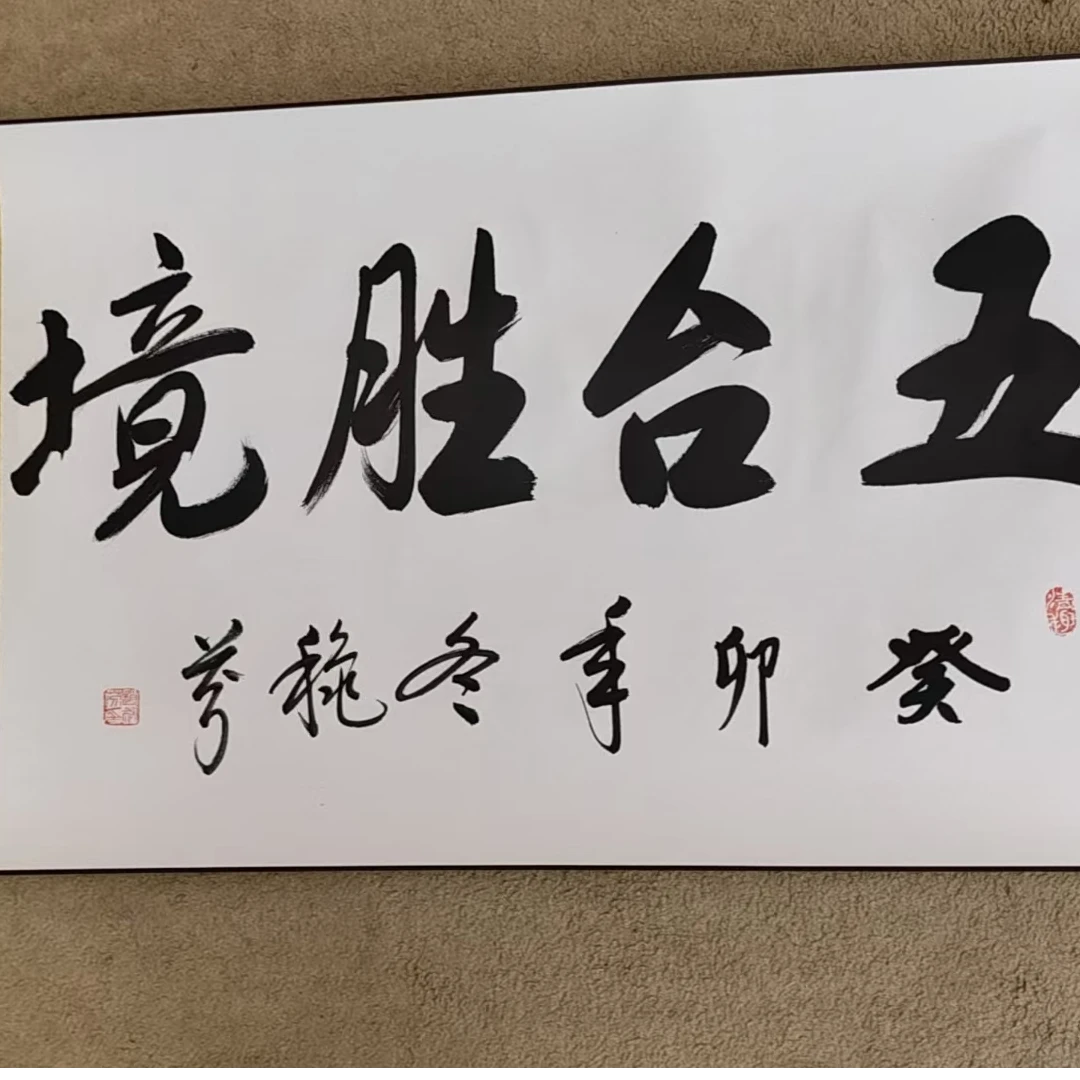 五台胜境
癸卯年冬 芬